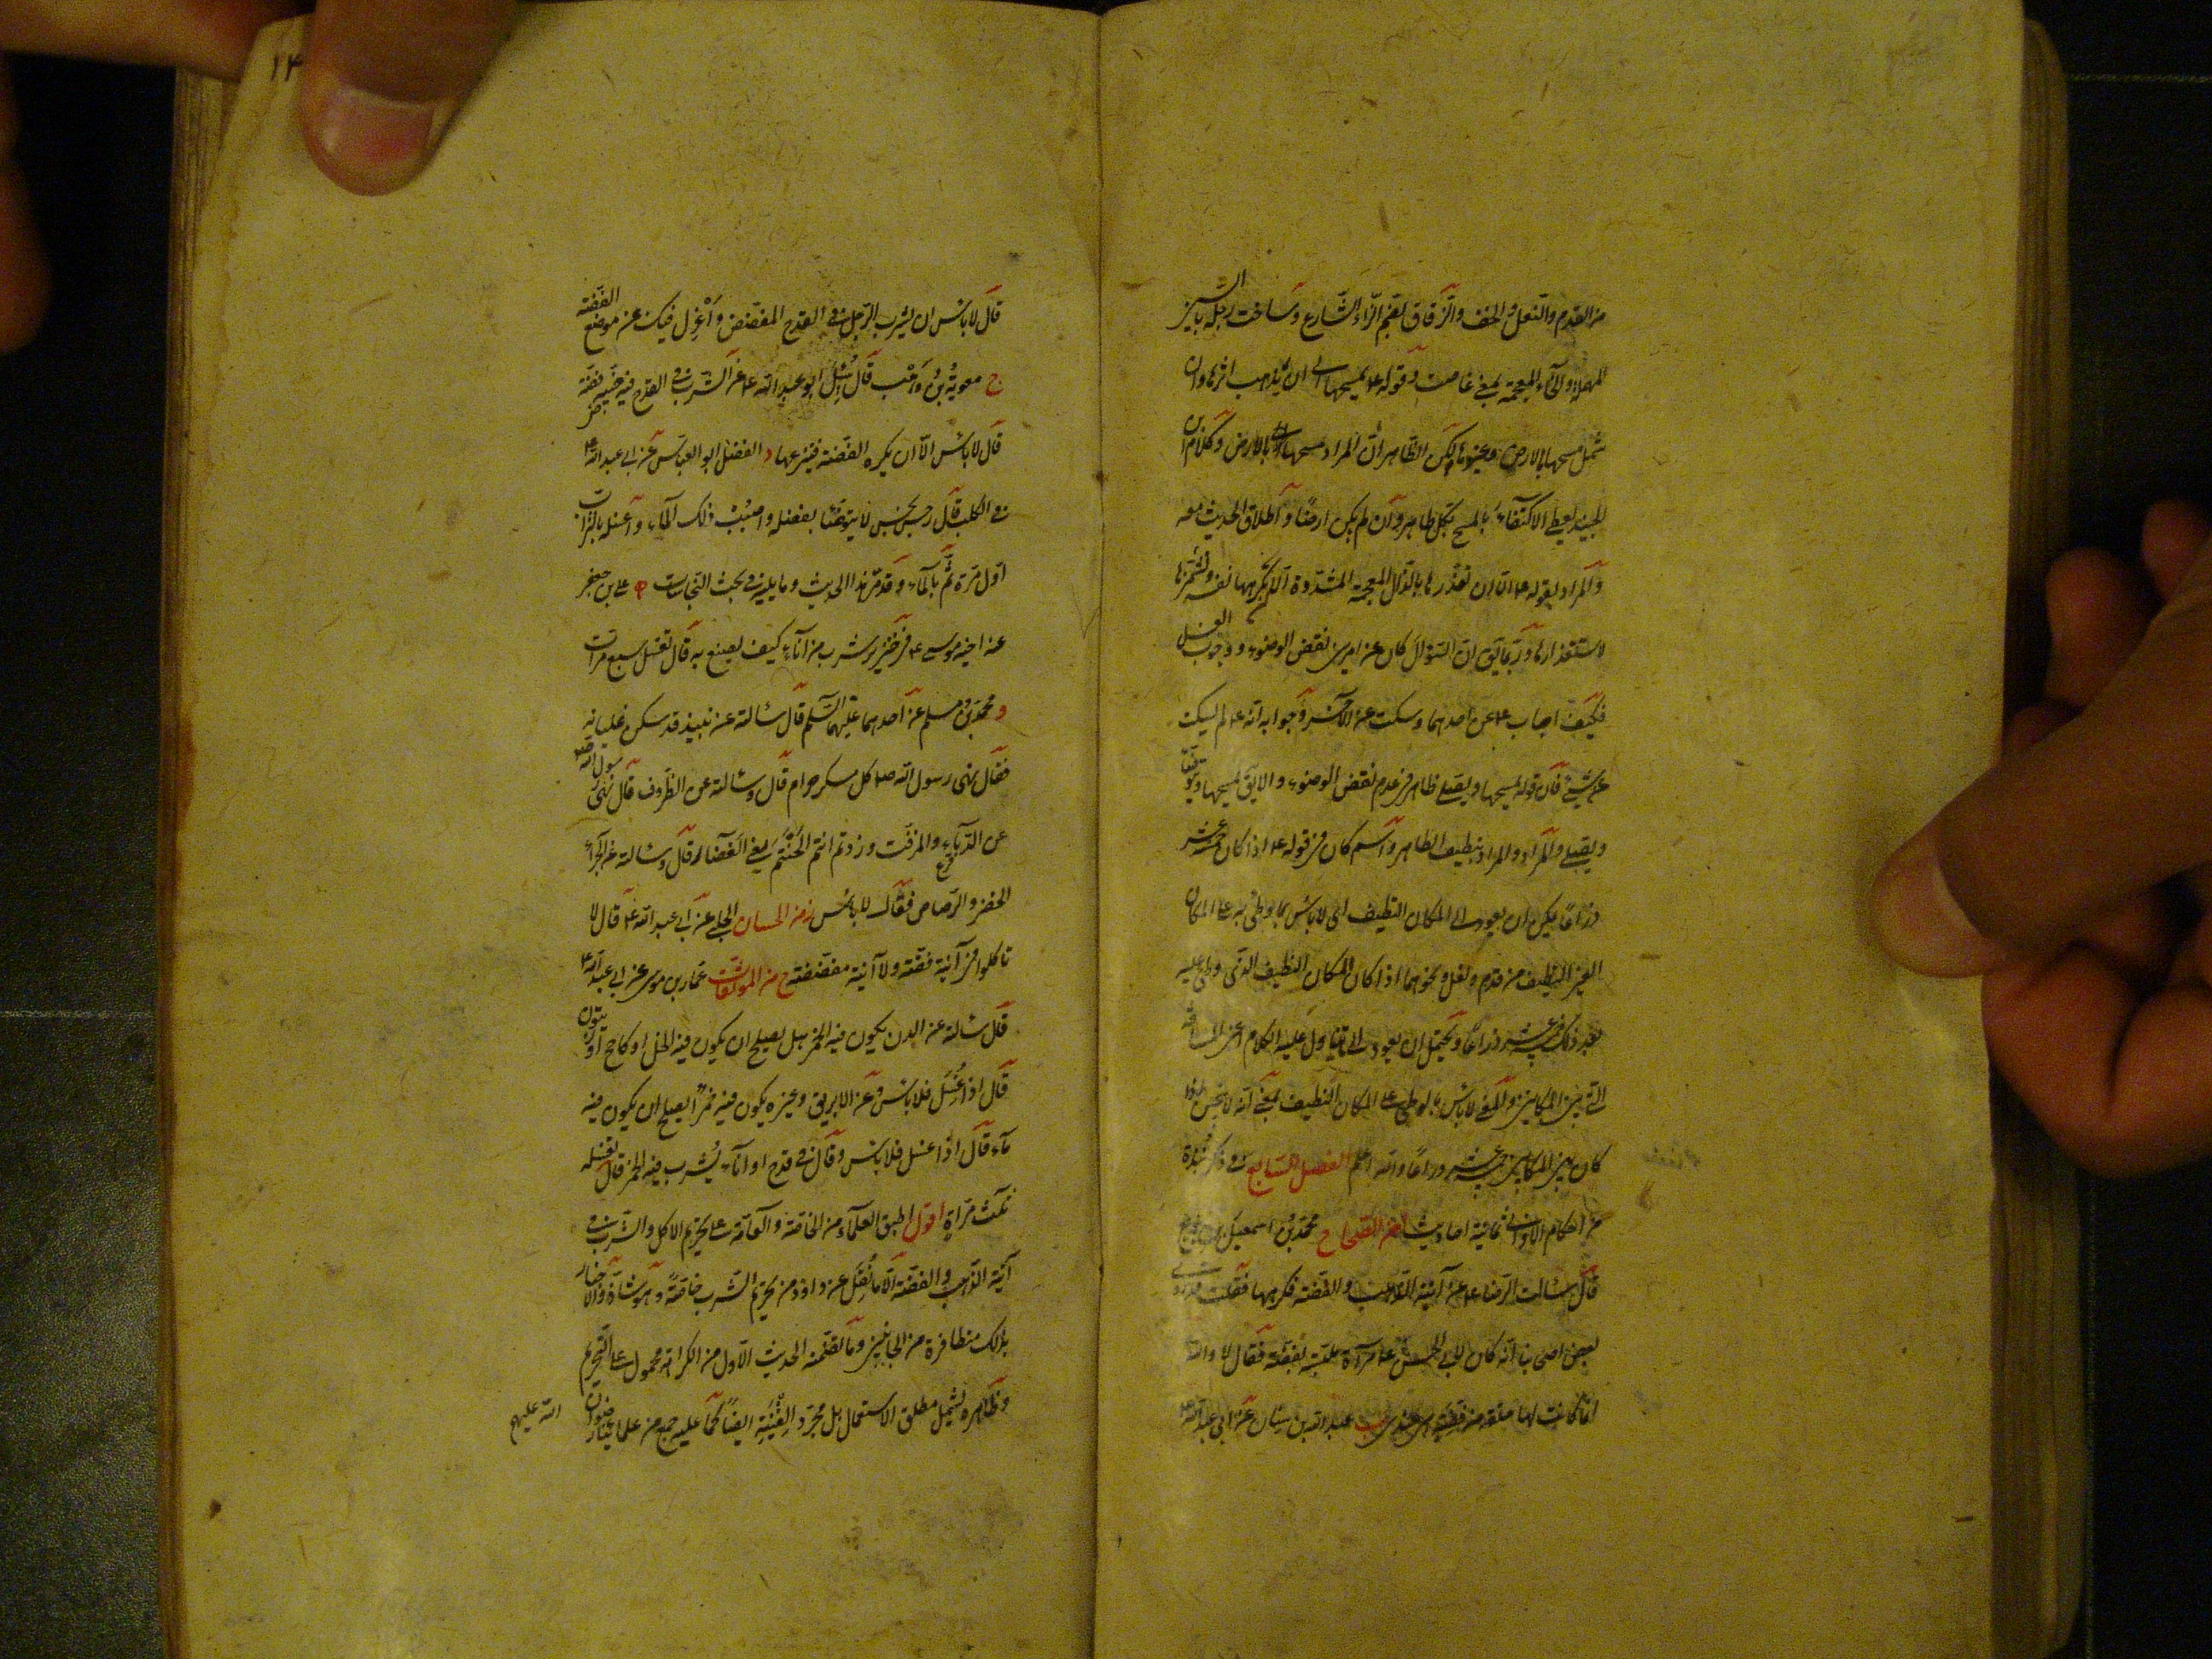 من القدم والنعل والخف والزقاق بضم الزاء الشارع وساخت رجله بالسين
المهملة والخاء المعجمة بمعنى غاصت وقوله ع يمسحها الى ان يذهب اثرها وان
شمل مسحها بالارض وغيرها لكن الظاهر ان المراد مسحها بالارض وكلام ابن
الجنيد يعطي الاكتفاء بالمسح بكل طاهر وان لم يكن ارضا واطلاق الحديث معه
والمراد بقوله ع الا ان يقذرها بالذال المعجمة المشددة ان يكرهها نفسه وتشمئز
لاستقذارها وربما يق ان السؤال كان عن امرين نقض الوضوء ووجوب الغسل
فكيف اجاب ع عن احدهما وسكت عن الآخر وجوابه انه ع لم يسكت
عن شيء فان قوله يمسحها ويصلي ظاهر في عدم نقض الوضوء والا لق يمسحها ويتوضأ
ويصلي والمراد بالنظيف الطاهر واسم كان في قوله ع اذا كان خمسة عشر
ذراعا يمكن ان يعود الى المكان النظيف اي لا باس بما وطئ به على المكان
الغير النظيف من قدم ونعل ونحوهما اذا كان المكان النظيف الذي وطئ عليه
بعد ذلك خمسة عشر ذراعا ويحتمل ان يعود الى ما دل عليه الكلام اعني المسافة
التي بين المكانين والمعنى لا باس بالوطي على المكان النظيف بمعنى انه لا ينجس اذا
كان بين المكانين خمسة عشر ذراعا والله اعلم الفصل السابع في ذكر نبذة
من احكام الاواني ثمانية احاديث من الصحاح محمد بن اسمعيل بن بزيع
قال سالت الرضا ع عن آنية الذهب والفضة فكرهها فقلت قد روى
بعض اصحابنا انه كان لابي الحسن ع مرآة ملبسة بفضة فقال لا والله
انما كانت لها حلقة من فضة هي عندي ب عبد الله بن سنان عن ابي عبد الله ع
قال لا باس ان يشرب الرجل في القدح المفضض واعزل فيك عن موضع الفضة
ج معوية بن وهب قال سئل ابو عبد الله ع عن الشرب في القدح فيه ضبة فضة
قال لا باس الا ان يكره الفضة فينزعها د الفضل ابو العباس عن ابي عبد الله ع
في الكلب قال رجس نجس لا يتوضأ بفضله واصبب ذلك الماء واغسله بالتراب
اول مرة ثم بالماء وقد مر هذا الحديث وما يليه في بحث النجاسات ه علي بن جعفر
عن اخيه موسى ع في خنزير شرب من اناء كيف يصنع به قال تغسل سبع مرات
و محمد بن مسلم عن احدهما عليهما السلم قال سالته عن نبيذ قد سكن غليانه
فقال نهى رسول الله ص كل مسكر حرام قال وسالته عن الظروف قال نهى رسول الله ص
عن الدباء والمزفت وزدتم انتم الحنتم يعني الغضار قال وسالته عن الجرار
الخضر والرصاص فقال لا باس ز من الحسان الحلبي عن ابي عبد الله ع قال لا
تاكلوا في آنية فضة ولا آنية مفضضة ح من الموثقات عمار بن موسى عن ابي عبد الله ع
قال سالته عن الدن يكون فيه الخمر هل يصلح ان يكون فيه الخل او كامخ او زيتون
قال اذا غسل فلا باس وعن الابريق وغيره يكون فيه خمر ا يصلح ان يكون فيه
ماء قال اذا غسل فلا باس وقال في قدح او اناء يشرب فيه الخمر قال تغسله
ثلث مرات اقول اطبق العلماء من الخاصة والعامة على تحريم الاكل والشرب في
آنية الذهب والفضة الا ما نقل عن داود من تحريم الشرب خاصة وهو شاذ والاخبار
بذلك متظافرة من الجانبين وما تضمنه الحديث الاول من الكراهة محمول على التحريم
وظاهره يشمل مطلق الاستعمال بل مجرد القنية ايضا كما عليه جمع من علمائنا رضوان
الله عليهم